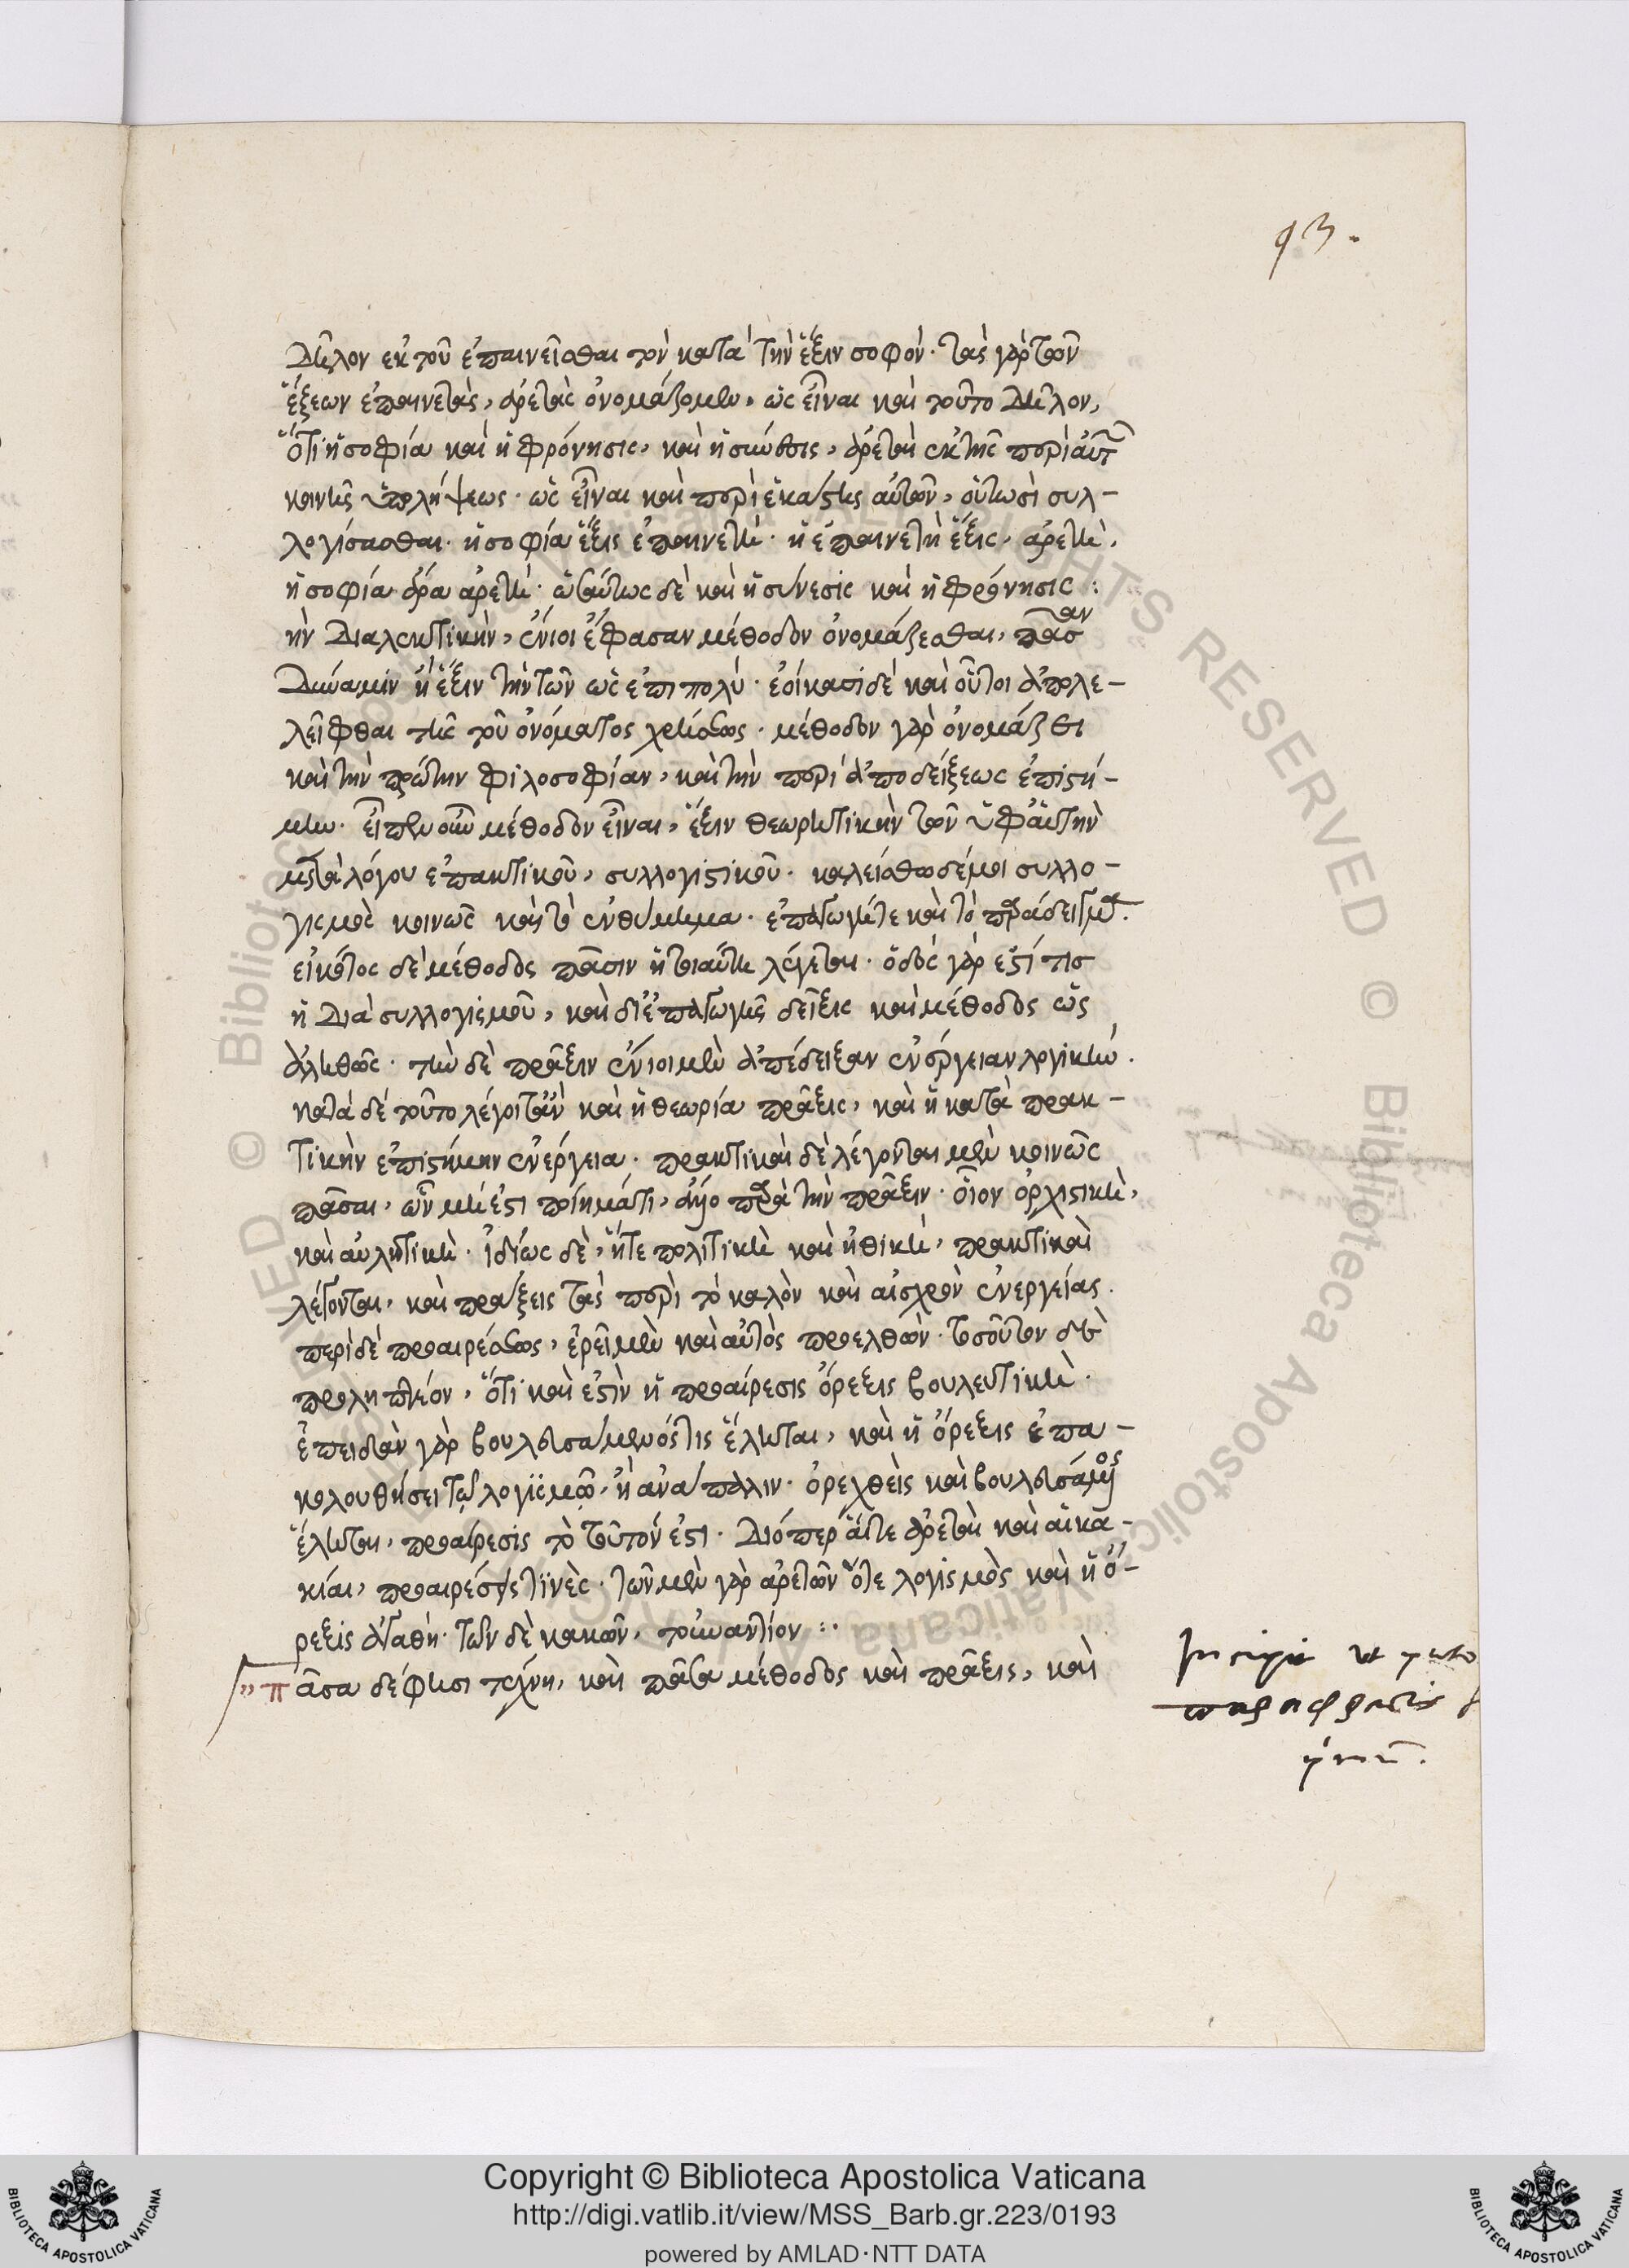 93.
Δῆλον ἐκ τοῦ ἐπαινεῖσθαι τὸν κατὰ τὴν ἕξιν σοφόν· τὰς γὰρ τῶν
ἕξεων ἐπαινετὰς, ἀρετὰς ὀνομάζομεν, ὡς εἶναι καὶ τοῦτο δῆλον,
ὅτι ἡ σοφία καὶ ἡ φρόνησις, καὶ ἡ σύνεσις, ἀρεταὶ ἐκ τῆς περὶ αὐτ
κοινῆς ὑπολήψεως· ὡς εἶναι καὶ περὶ ἑκάστης αὐτῶν, οὕτωσὶ συλ-
λογίσασθαι· ἡ σοφία ἕξις ἐπαινετή· ἡ ἐπαινετὴ ἕξις, ἀρετή,
ἡ σοφία ἄρα ἀρετή· ὡσαύτως δὲ καὶ ἡ σύνεσις καὶ ἡ φρόνησις :
ὴν διαλεκτικὴν, ἔνιοι ἔφασαν μέθοδον ὀνομάζεσθαι, πᾶσαν
δύναμιν ἢ ἕξιν τὴν τῶν ὡς ἐπιπολύ· ἐοίκασι δὲ καὶ οὗτοι ἀπολε-
λεῖφθαι τῆς τοῦ ὀνόματος χρήσεως· μέθοδον γὰρ ὀνομάζει
καὶ τὴν πρώτην φιλοσοφίαν, καὶ τὴν περὶ ἀποδείξεως ἐπιστή-
μην· εἶπεν οὖν μέθοδον εἶναι, ἕξιν θεωρητικὴν τῶν ὑφ' αὑτὴν
μετὰ λόγου ἐπακτικοῦ, συλλογιστικοῦ· καλείσθω δέ μοι συλλο-
γισμὸς κοινῶς καὶ τὸ ἐνθύμημα· ἐπαγωγή τε καὶ τὸ παράδειγμα.
εἰκότος δὲ μέθοδος πᾶσιν ἡ τοιαύτη λέγεται· ὁδὸς γάρ ἐστί τισ
ἡ διὰ συλλογισμοῦ, καὶ δι' ἐπαγωγῆς δεῖξις καὶ μέθοδος ὡς
ἀληθῶς· τὴν δὲ πρᾶξιν ἔνιοι μὲν ἀπέδειξαν ἐνέργειαν λογικήν.
κατὰ δὲ τοῦτο λέγοιτ' ἂν καὶ ἡ θεωρία πρᾶξις, καὶ ἡ κατὰ πρακ-
τικὴν ἐπιστήμην ἐνέργεια· πρακτικαὶ δὲ λέγονται μὲν κοινῶς
πᾶσαι, ὧν μή ἐστι ποίημά τι, παρὰ τὴν πρᾶξιν· οἷον ὀρχιστικὴ,
καὶ αὐλητικὴ· ἰδίως δὲ, ἥτε πολιτικὴ καὶ ἠθικὴ, πρακτικαὶ
λέγονται, καὶ πράξεις τὰς περὶ τὸ καλὸν καὶ αἰσχρὸν ἐνεργείας.
περὶ δὲ προαιρέσεως, ἐρεῖ μὲν καὶ αὐτὸς προελθών· τοσοῦτον δὲ
προληπτέον, ὅτι καὶ ἐστὶν ἡ προαίρεσις ὄρεξις βουλευτικὴ·
ἐπειδὰν γὰρ βουλευσάμενός τις ἕληται, καὶ ἡ ὄρεξις ἐπα-
κολουθήσει τῷ λογισμῷ, ἢ ἀνάπαλιν· ὀρεχθεὶς καὶ βουλευσάμενος
ἕληται, προαίρεσις τὸ τοῦτόν ἐστι· διόπερ αἵτε ἀρεταὶ καὶ αἱ κα-
κίαι, προαιρέσεις τινὲς· τῶν μὲν γὰρ ἀρετῶν ὅτε λογισμὸς καὶ ἡ ὄ-
ρεξις ἀγαθή· τῶν δὲ κακῶν, τοὐναντίον :·
πᾶσα δέ φησι τέχνη, καὶ πᾶσα μέθοδος καὶ πρᾶξις, καὶ
Copyright © Biblioteca Apostolica Vaticana
http://digi.vatlib.it/view/MSS_Barb.gr.223/0193
powered by AMLAD·NTT DATA